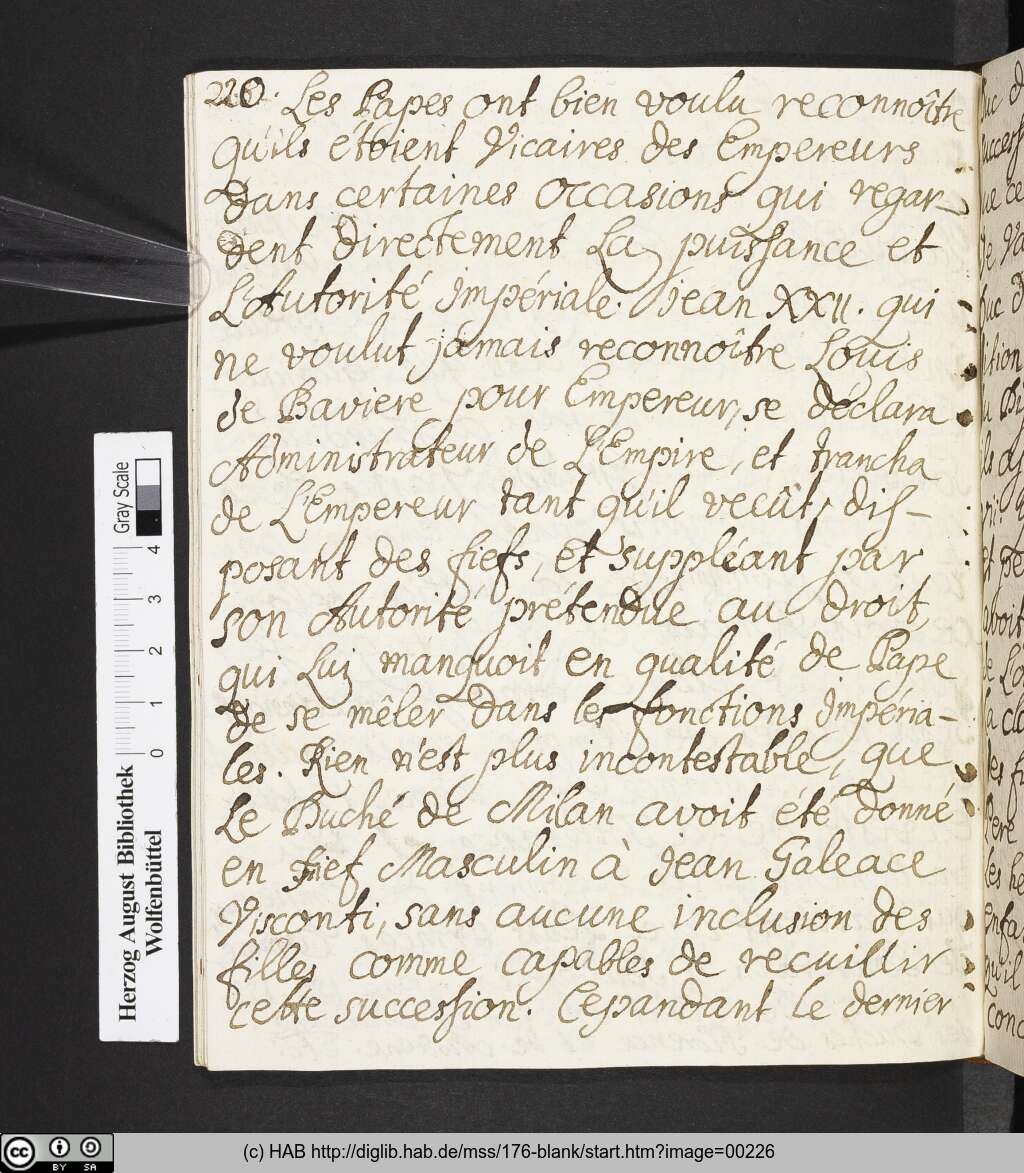 220. Les Papes ont bien voulu reconnoître
qu'ils étoient Vicaires des Empereurs
dans certaines occasions qui regar-
dent directement La puissance et
L'Autorité Impériale. Jean XXII. qui
ne voulut jamais reconnoître Louis
de Baviere pour Empereur, se déclara
Administrateur de L'Empire, et trancha
de L'Empereur tant qu'il vecût, dis-
posant des fiefs, et suppléant par
son Autorité prétendue au droit,
qui Luy manquoit en qualité de Pape
de se mêler dans les fonctions Impéria-
les. Rien n'est plus incontestable, que
Le Duché de Milan avoit été donné
en fief Masculin à Jean Galeace
Visconti, sans aucune inclusion des
filles comme capables de recuillir
cette succession. Cepandant Le dernier
Gray Scale
0 1 2 3 4
Herzog August Bibliothek
Wolfenbüttel
cc BY SA
(c) HAB http://diglib.hab.de/mss/176-blank/start.htm?image=00226